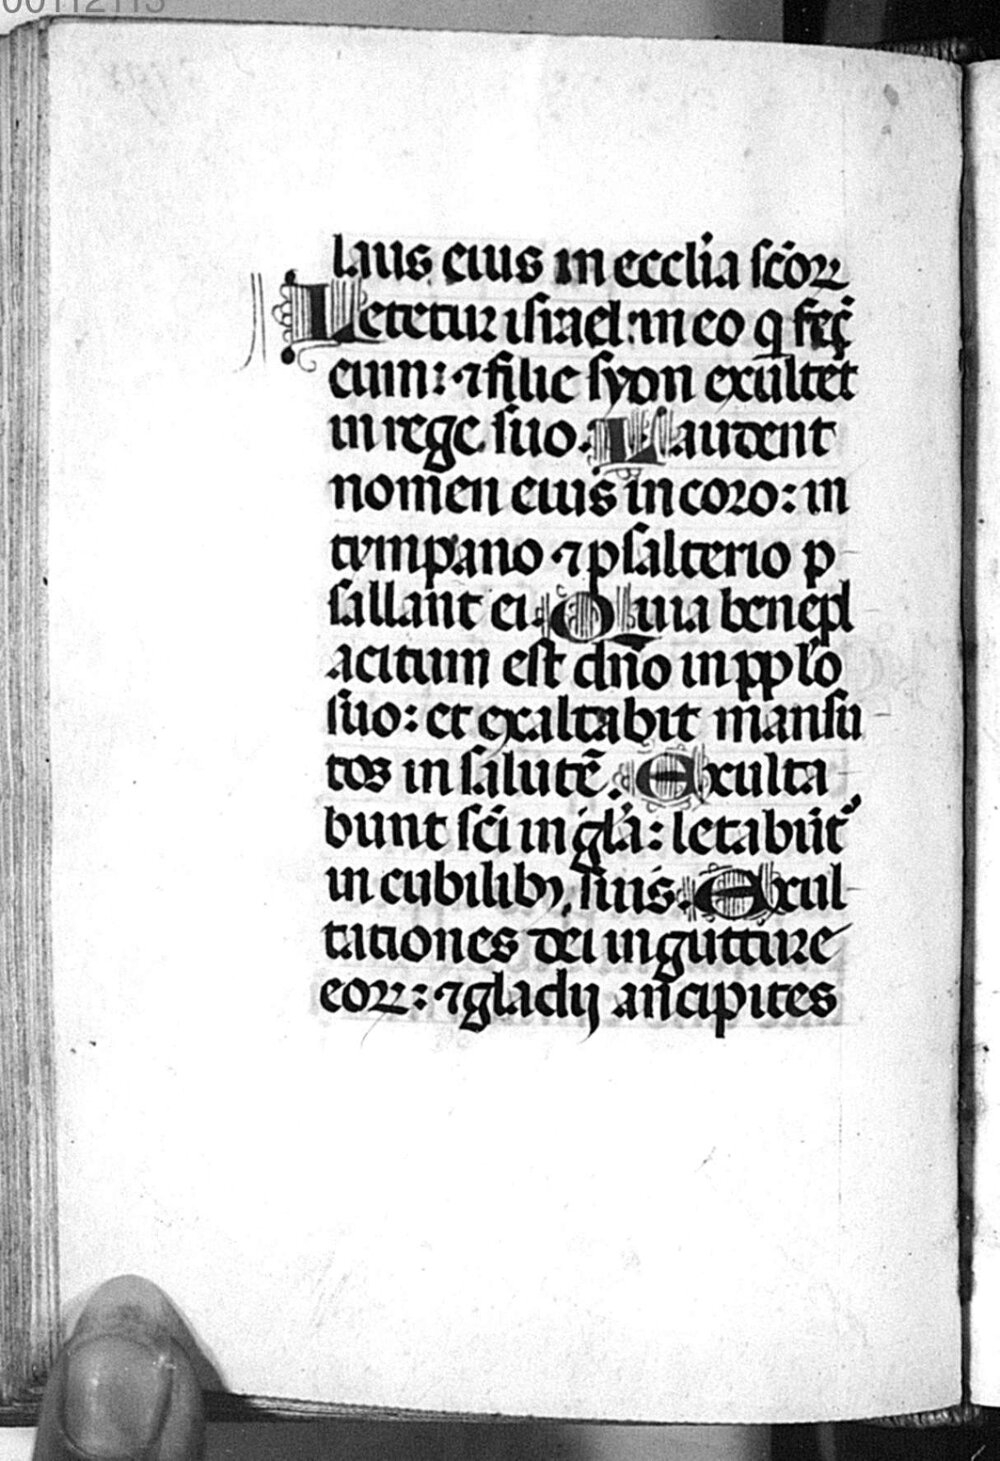 00112113
laus eius in ecclīa scōꝝ
Letetur israel: in eo q fec̄
eum: ⁊ filie syon exultēt
in rege suo. Laudent
nomen eius in coro: in
tympano ⁊ psalterio p
sallant ei. Quia benepl
acitum est dn̄o in pplō
suo: et exaltabit mansu
tos in salutē. Exulta
bunt scī in gl̄a: letabūt᷑
in cubilibꝫ suis. Exul
tationes dei in gutture
eoꝝ: ⁊ gladij ancipites